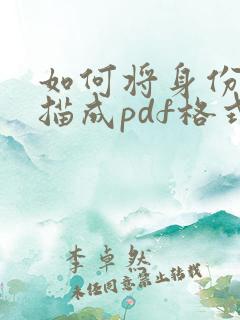 如何将身份
描成pdf格式
李卓然
未经同意禁止转载